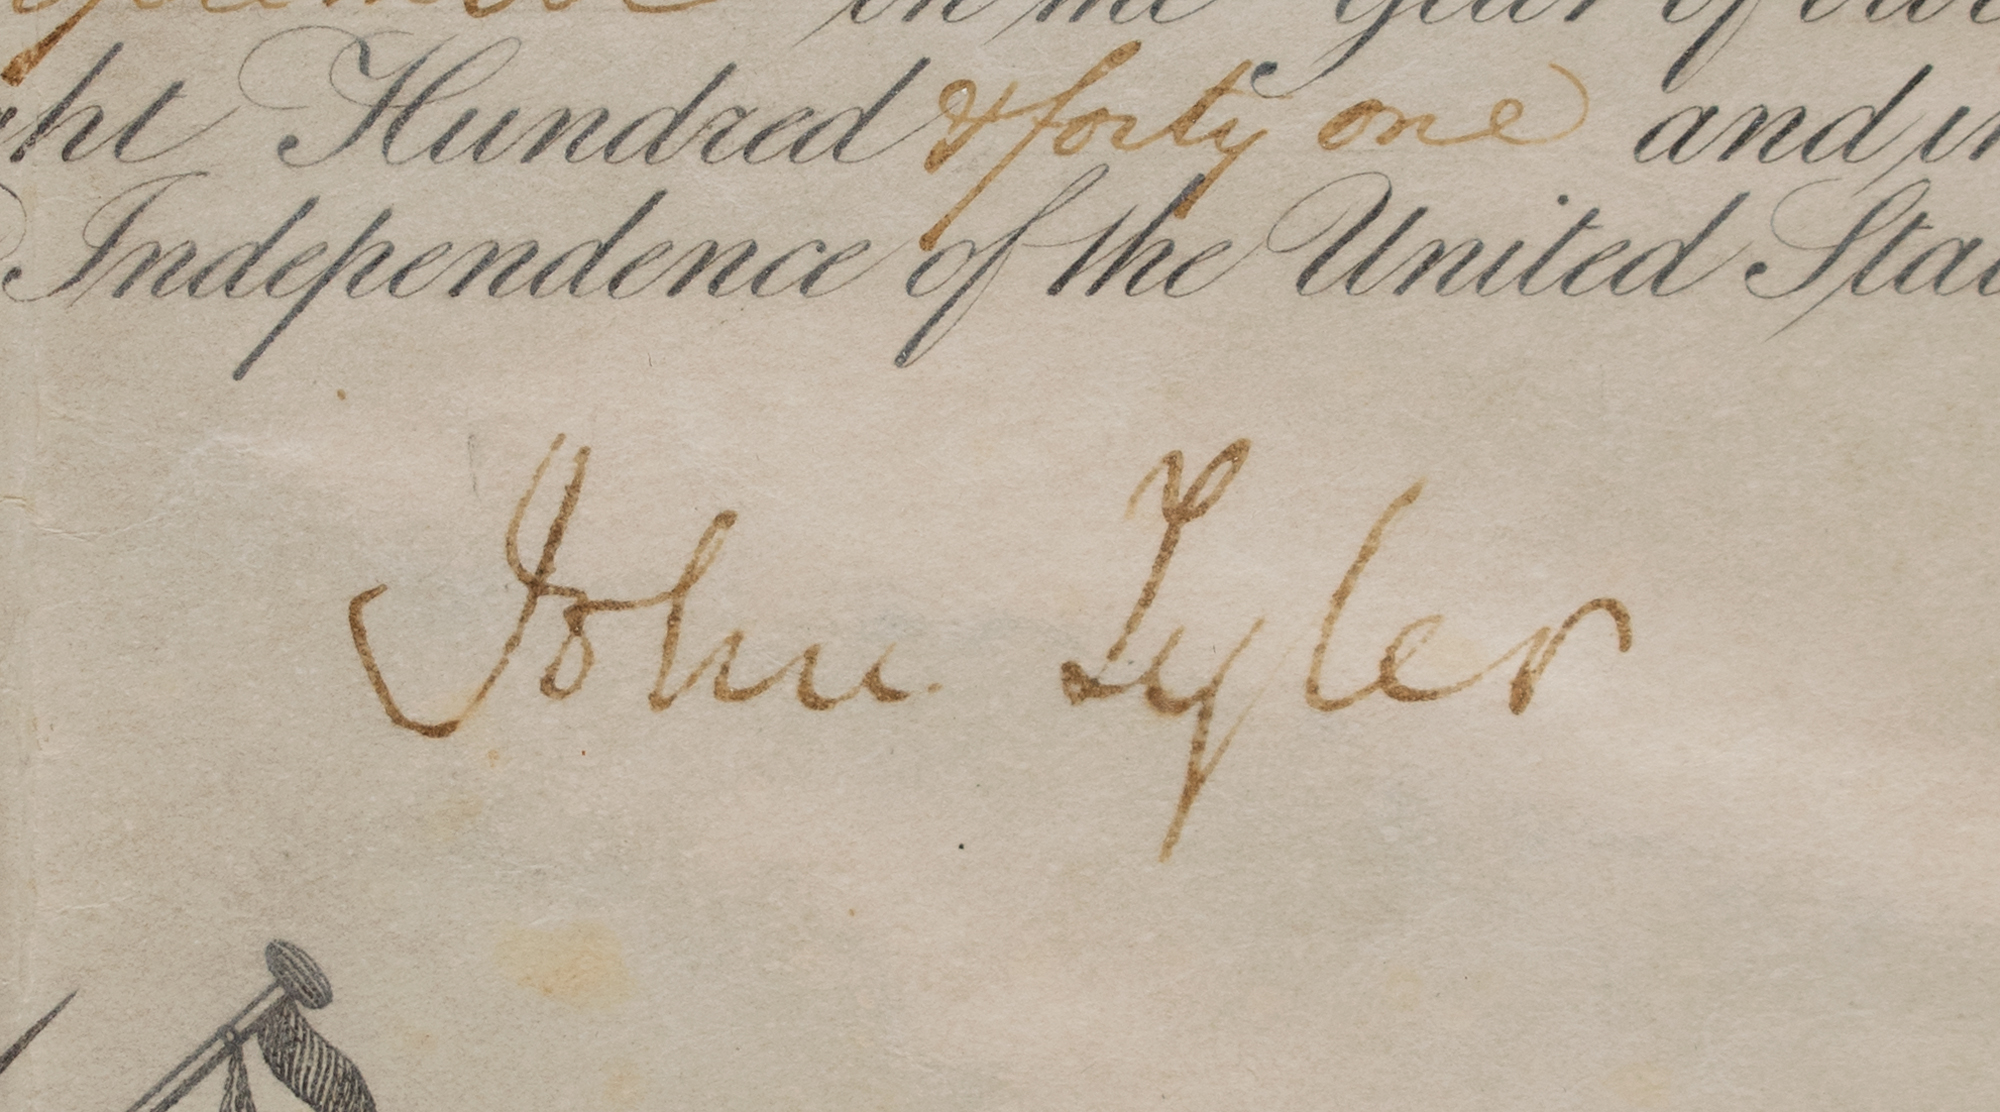 in the Year of our
ght Hundred & forty one and in
Independence of the United Stat
John Tyler